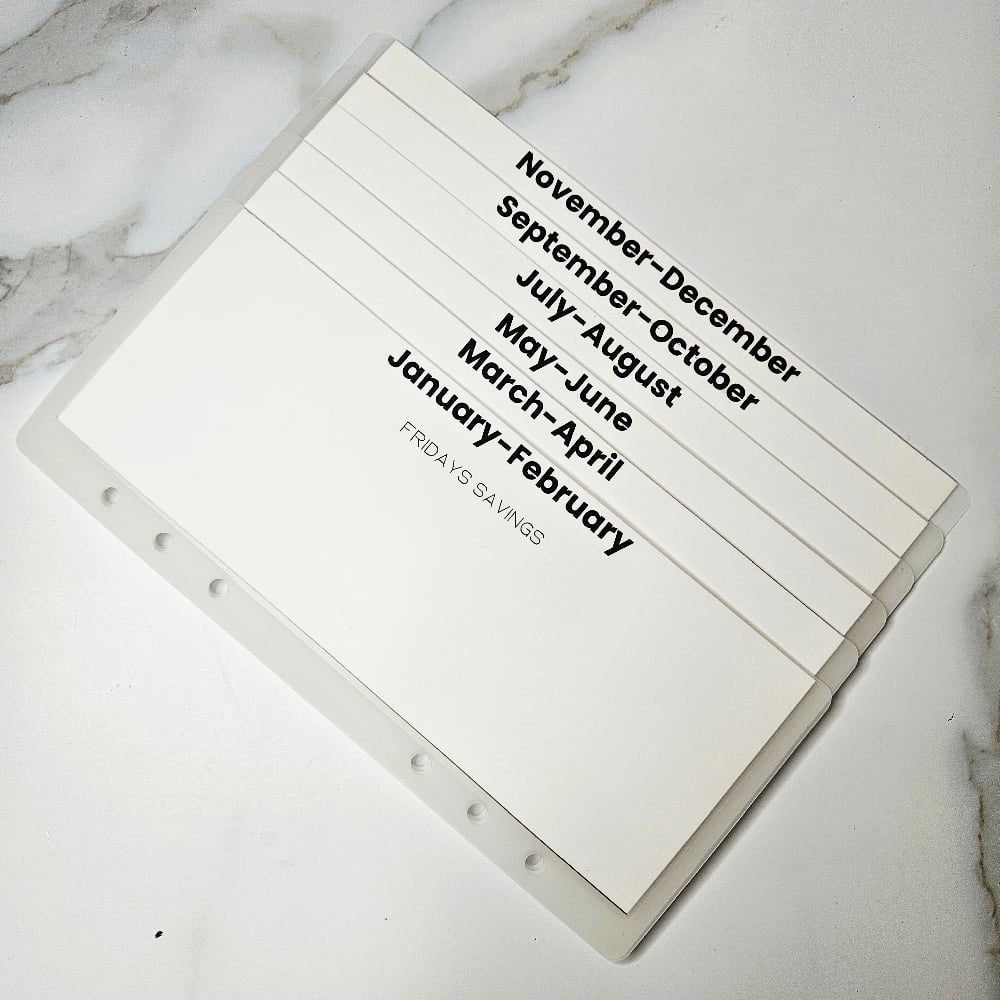 November-December
September-October
July-August
May-June
March-April
January-February
FRIDAYS SAVINGS